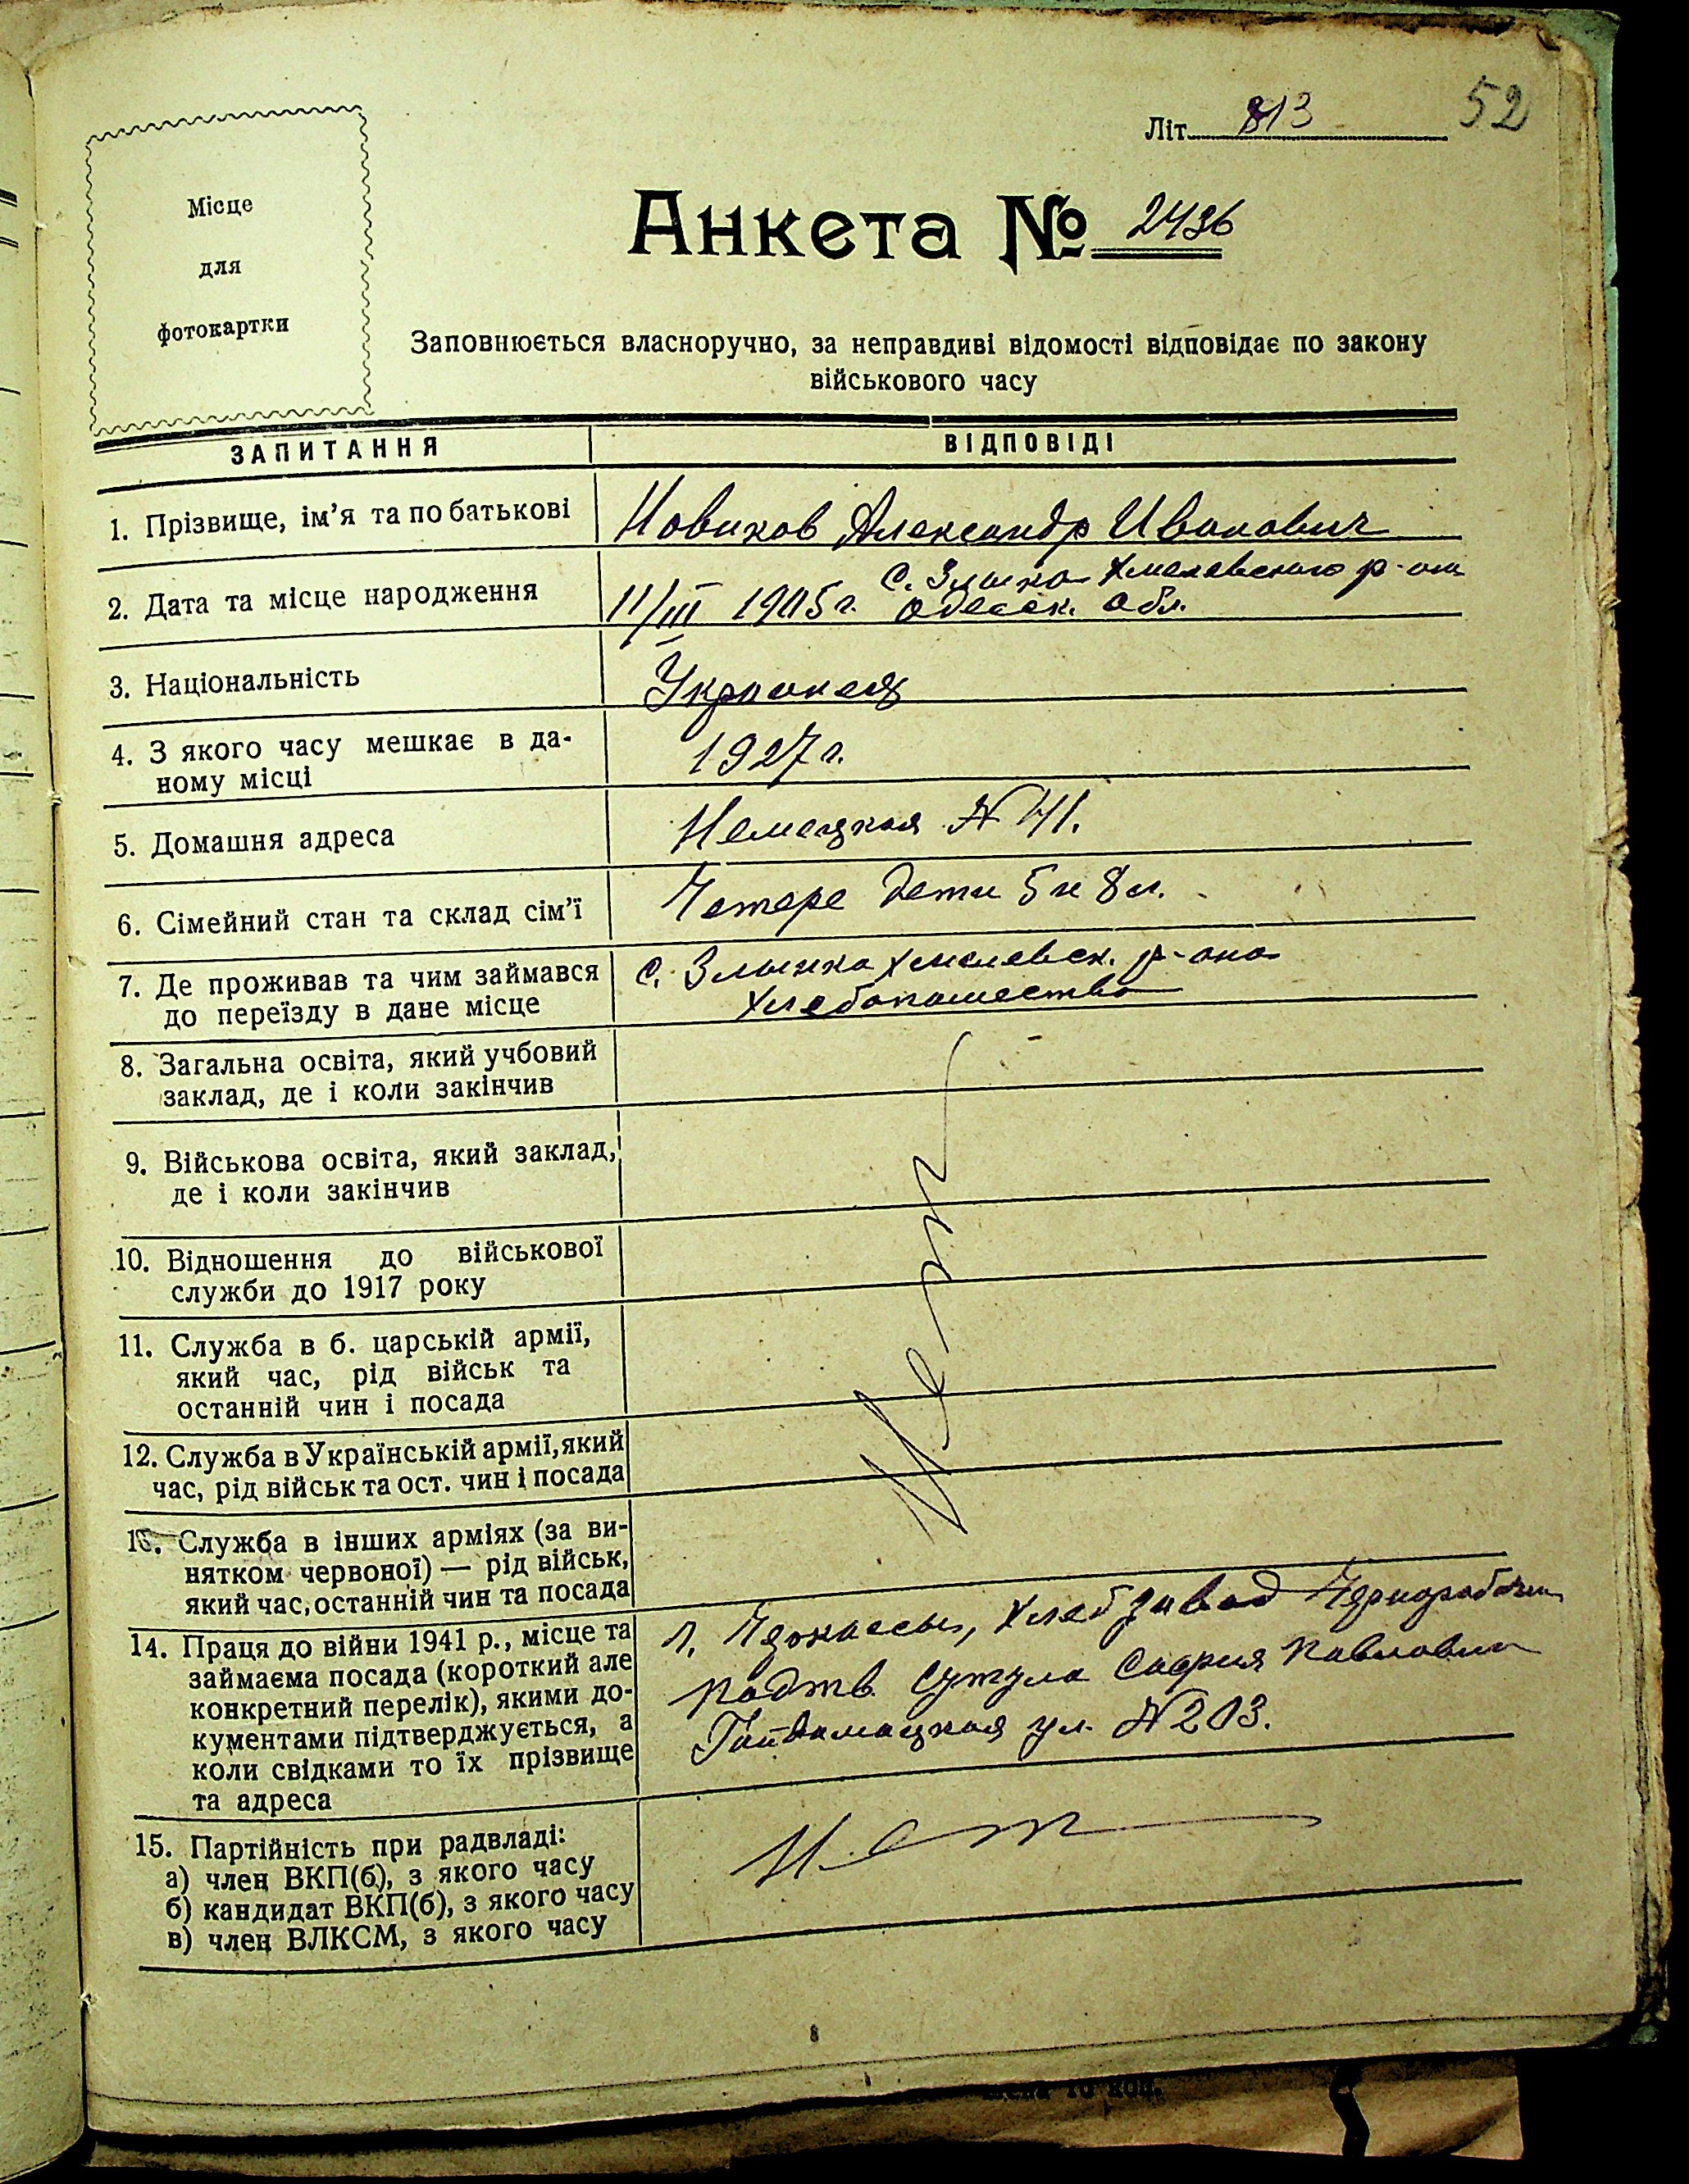 52
Літ. 813
Місце
для
фотокартки
Анкета № 2436
Заповнюється власноручно, за неправдиві відомості відповідає по закону
військового часу
ЗАПИТАННЯ
ВІДПОВІДІ
1. Прізвище, ім’я та по батькові
Новиков Александр Иванович
2. Дата та місце народження
11/III 1905 г. с. Злынка Хмелевского р-на
Одесск. обл.
3. Національність
Украинец
4. З якого часу мешкає в да-
ному місці
1927 г.
5. Домашня адреса
Немецкая № 41.
6. Сімейний стан та склад сім’ї
Четере дети 5 и 8 л.
7. Де проживав та чим займався
до переїзду в дане місце
с. Злынка Хмелевск. р-она
Хлебопашество
8. Загальна освіта, який учбовий
заклад, де і коли закінчив
9. Військова освіта, який заклад,
де і коли закінчив
10. Відношення до військової
служби до 1917 року
11. Служба в б. царській армії,
який час, рід військ та
останній чин і посада
12. Служба в Українській армії, який
час, рід військ та ост. чин і посада
13. Служба в інших арміях (за ви-
нятком червоної) — рід військ,
який час, останній чин та посада
Нет
14. Праця до війни 1941 р., місце та
займаєма посада (короткий але
конкретний перелік), якими до-
кументами підтверджується, а
коли свідками то їх прізвище
та адреса
г. Черкассы, Хлебзавод Чернорабочий
подтв. Сутула София Павловна
Гайдамацкая ул. № 203.
15. Партійність при радвладі:
а) член ВКП(б), з якого часу
б) кандидат ВКП(б), з якого часу
в) член ВЛКСМ, з якого часу
Нет
8